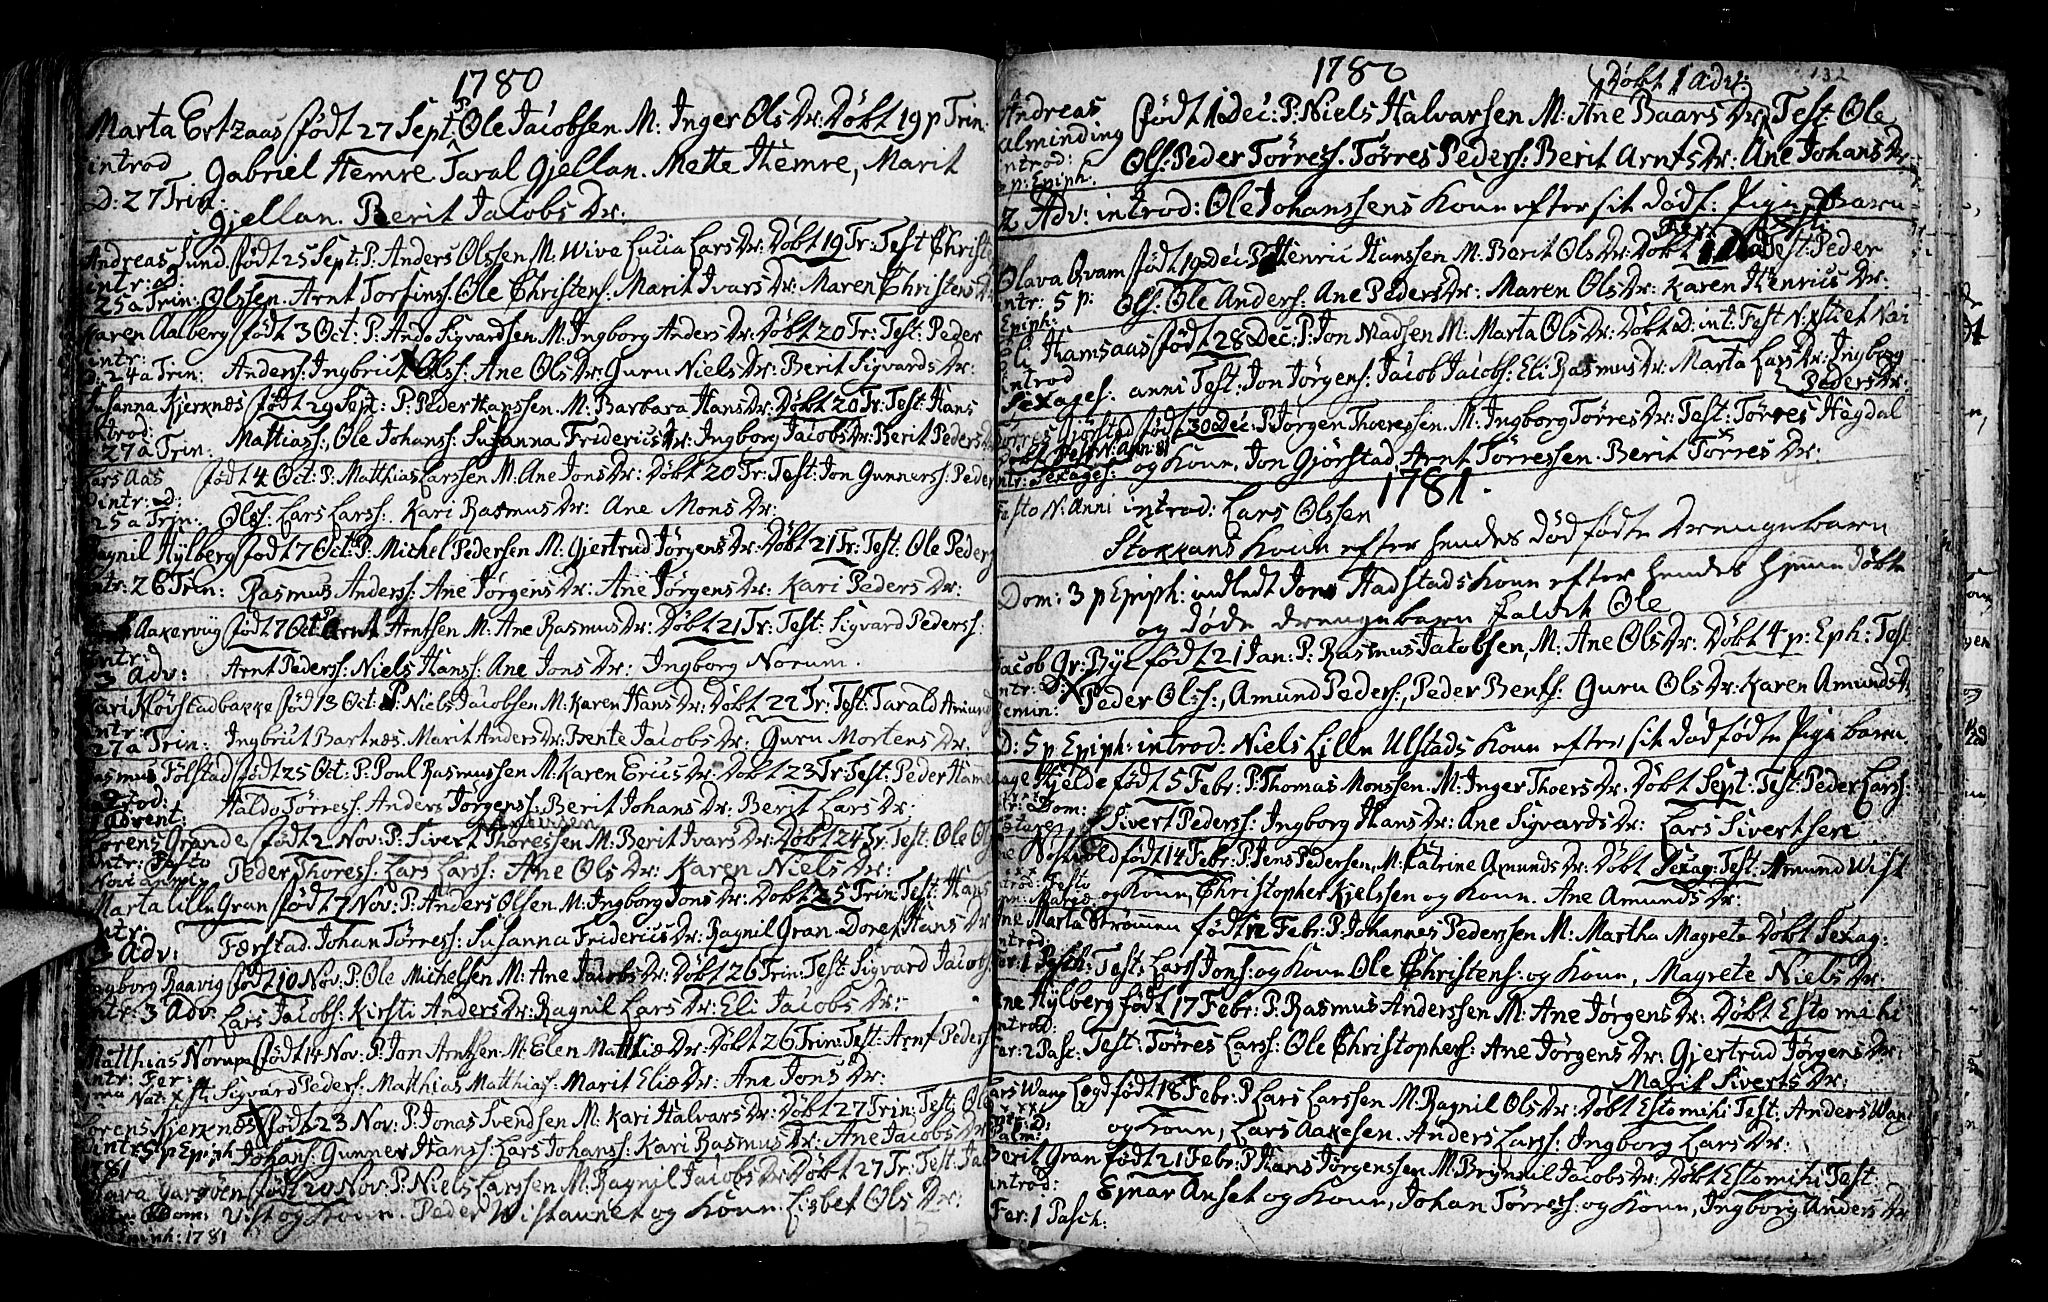 1780
Marta Ertzaas født 27 Sept: P: Ole Jacobsen M: Inger Ols Dr: Døbt 19 p Trin:
introd Gabriel Hemre Taral Gjellan. Mette Hemre, Marit
D: 27 Trin: Gjellan. Berit Jacobs Dr:
Andreas Sund født 25 Sept: P: Anders Olssen M: Wive Lucia Lars Dr: Døbt 19 Tr: Test Christe
intr: d:
25 a Trin: Olssen. Arnt Torfins: Ole Christens: Marit Ivars Dr: Maren Christens Dr
Karen Aalberg født 3 Oct: P: Ando Sigvardsen M: Ingborg Anders Dr: Døbt 20 Tr: Test: Peder
intr:
D. 24 a Trin: Anderss: Ingbrut Olss: Ane Ols Dr: Guru Niels Dr: Berit Sigvards Dr:
Susanna Kjerknæs født 29 Sept: P: Peder Hanssen. M: Barbara Hans Dr: Døbt 20 Tr: Test: Hans
introd:
27 a Trin: Mattiass: Ole Johanss: Susanna Fridericus Dr: Ingborg Jacobs Dr: Berit Peders Dr
Lars Aas født 4 Oct: P: Matthias Larssen M: Ane Jons Dr: Døbt 20 Tr: Test: Jon Gunnerss: Peder
intr: d:
25 a Trin: Olss: Lars Larss: Kari Rasmus Dr: Ane Mons Dr:
Ragnil Hylberg født 7 Oct: P: Michel Pedersen M: Gjertrud Jørgens Dr: Døbt 21 Tr: Test: Ole Peders
intr: 26 Trin: Rasmus Anderss: Ane Jørgens Dr: Ane Jørgens Dr: Kari Peders Dr:
Aakervig født 7 Oct: P: Arnt Arntsen M: Ane Rasmus Dr: Døbt 21 Tr: Test: Sigvard Pederss:
intr:
3 Adv: Arnt Pederss: Niels Hanss: Ane Jons Dr: Ingborg Norum.
Kari Kløvstadbakke født 13 Oct: P: Niels Jacobsen M: Karen Hans Dr: Døbt 22 Tr: Test: Tarald Amund
intr:
27 a Trin: Ingbrut Bartnæs. Marit Anders Dr: Bente Jacobs Dr: Guru Mortens Dr.
Rasmus Følstad født 25 Oct: P: Poul Rasmussen M: Karen Erics Dr: Døbt 23 Tr: Test: Peder Hame
introd:
1 Advent: Haldo Tørress: Anders Jørgenss: Berit Johans Dr: Berit Lars Dr:
Lorens Grande født 2 Nov: P: Sivert Thoressen M: Berit Ivars Dr: Døbt 24 Tr: Test: Ole Ols
intr: Festo
Novi anni Peder Thoress: Lars Larss: Ane Ols Dr: Karen Niels Dr:
Marta Lille Gran født 7 Nov: P: Anders Olsen M: Ingborg Jons Dr: Døbt 25 Trin: Test: Hans
intr:
3 Adv: Færstad. Johan Tørress: Susanna Fridericus Dr: Ragnil Gran Doret Hans Dr
Ingborg Raavig født 10 Nov: P: Ole Michelsen M: Ane Jacobs Dr: Døbt 26 Trin: Test: Sigvard Jacobs
intr: 3 Adv. Lars Jacobs: Kirsti Anders Dr: Ragnil Lars Dr: Eli Jacobs Dr:
Matthias Norum født 14 Nov: P: Jon Arntsen M: Elen Matthiæ Dr: Døbt 26 Trin: Test: Arnt Peders
intr: Fer:
Nat: Xsti Sigvard Pederss: Matthias Matthiass: Marit Eliæ Dr: Ane Jons Dr:
Lorens Kjerknæs født 23 Nov: P: Jonas Svendsen M: Kari Halvars Dr: Døbt 27 Trin: Test: Ole
intr: 5 p Epiph Johans: Gunner Hanss: Lars Johanss: Kari Rasmus Dr: Ane Jacobs Dr
1781
født 20 Nov: P: Niels Larssen M: Ragnil Jacobs Dr: Døbt 27 Tr: Test: Jac
Dom: Vist og Konn. Peder Wistaunet og Konn. Lisbet Ols Dr:
1781
1780 Døbt 1 Adv: 132
Andreas født 1 Dec: P: Niels Halvarsen M: Ane Baars Dr: Test: Ole
Alminding
introd: Ols: Peder Tørress. Tørres Peders: Berit Arnts Dr: Ane Johans Dr:
p: Epiph.
2 Adv: introd: Ole Johanssens Konn efter sit dødf: Pige Barn
Olava Qvam født 19 Dec: P: Henric Hanssen M: Berit Ols Dr: Døbt Test: Peder
intr: 5 p: Ols: Ole Anders: Ane Peders Dr: Maren Ols Dr: Karen Henrics Dr:
Epiph:
Eli Hamsaas født 28 Dec: P: Jon Madsen M: Marta Ols Dr: Døbt D: int: Fest N: Xsti et Novi
introd
Sexages: anni Test: Jon Jørgens: Jacob Jacobs: Eli Rasmus Dr: Marta Lars Dr: Ingborg
Peders Dr:
Tørres Gjørstad født 30 Dec: P: Jørgen Thoressen. M: Ingborg Tørres Dr: Test: Tørres Hegdal
Døbt Fest: N: Ann: 81
intr: Sexages: og Konn, Jon Gjørstad, Arnt Tørressen. Berit Tørres Dr:
1781.
Festo N: Anni introd: Lars Olssen
Stokkans Konn efter hendes død fødte Drengebarn
Dom: 3 p Epiph: indledt Jons Hadstads Konn efter hendes hjemme døbte
og døde Drengebarn kaldet Ole
Jacob Gr: Bye født 21 Jan: P: Rasmus Jacobsen, M: Ane Ols Dr: Døbt 4 p: Eph: Test
intr: D:
Remin: Peder Olss:, Amund Peders:, Peder Bents: Guru Ols Dr: Karen Amunds Dr
D: 5 p Epiph: introd: Niels Lille Ulstads Konn efter sit dødfødte Pige barn.
Hjelde født 5 Febr: P: Thomas Monssen. M: Inger Thoers Dr: Døbt Sept: Test: Peder Larss:
Dom: Sivert Peders: Ingborg Hans Dr: Ane Sigvards Dr: Lars Sivertsen
Nøstvold født 14 Febr: P: Jens Pedersen, M: Catrine Amunds Dr: Døbt Sexag: Test: Amund Wist
introd: Festo og Konn, Christopher Kjelssen og Konn. Ane Amunds Dr:
Ane Marta Strømmen født 12 Febr: P: Johannes Pederssen M: Martha Magrete Døbt Sexag:
introd:
Fer: 1 Pasch: Test: Lars Jons: og Konn Ole Christens: og Konn, Magrete Niels Dr:
Ane Hylberg født 17 Febr: P: Rasmus Anderssen M: Ane Jørgens Dr: Døbt Estomihi
introd:
Fer: 2 Pasc: Test: Tørres Larss: Ole Christophers: Ane Jørgens Dr: Gjertrud Jørgens Dr:
Marit Siverts Dr:
Lars Wang Legd født 18 Febr: P Lars Larssen M: Ragnil Ols Dr: Døbt Estomihi Test: Anders Wang
Palm: og Konn, Lars Aakesen. Anders Larss: Ingborg Lars Dr:
Berit Gran født 21 Febr: P Hans Jørgenssen M: Brynnil Jacobs Dr: Døbt Estomihi Test:
introd: Ejnar Anset og Konn, Johan Tørress: og Konn, Ingborg Anders Dr
Fer: 1 Pasch: